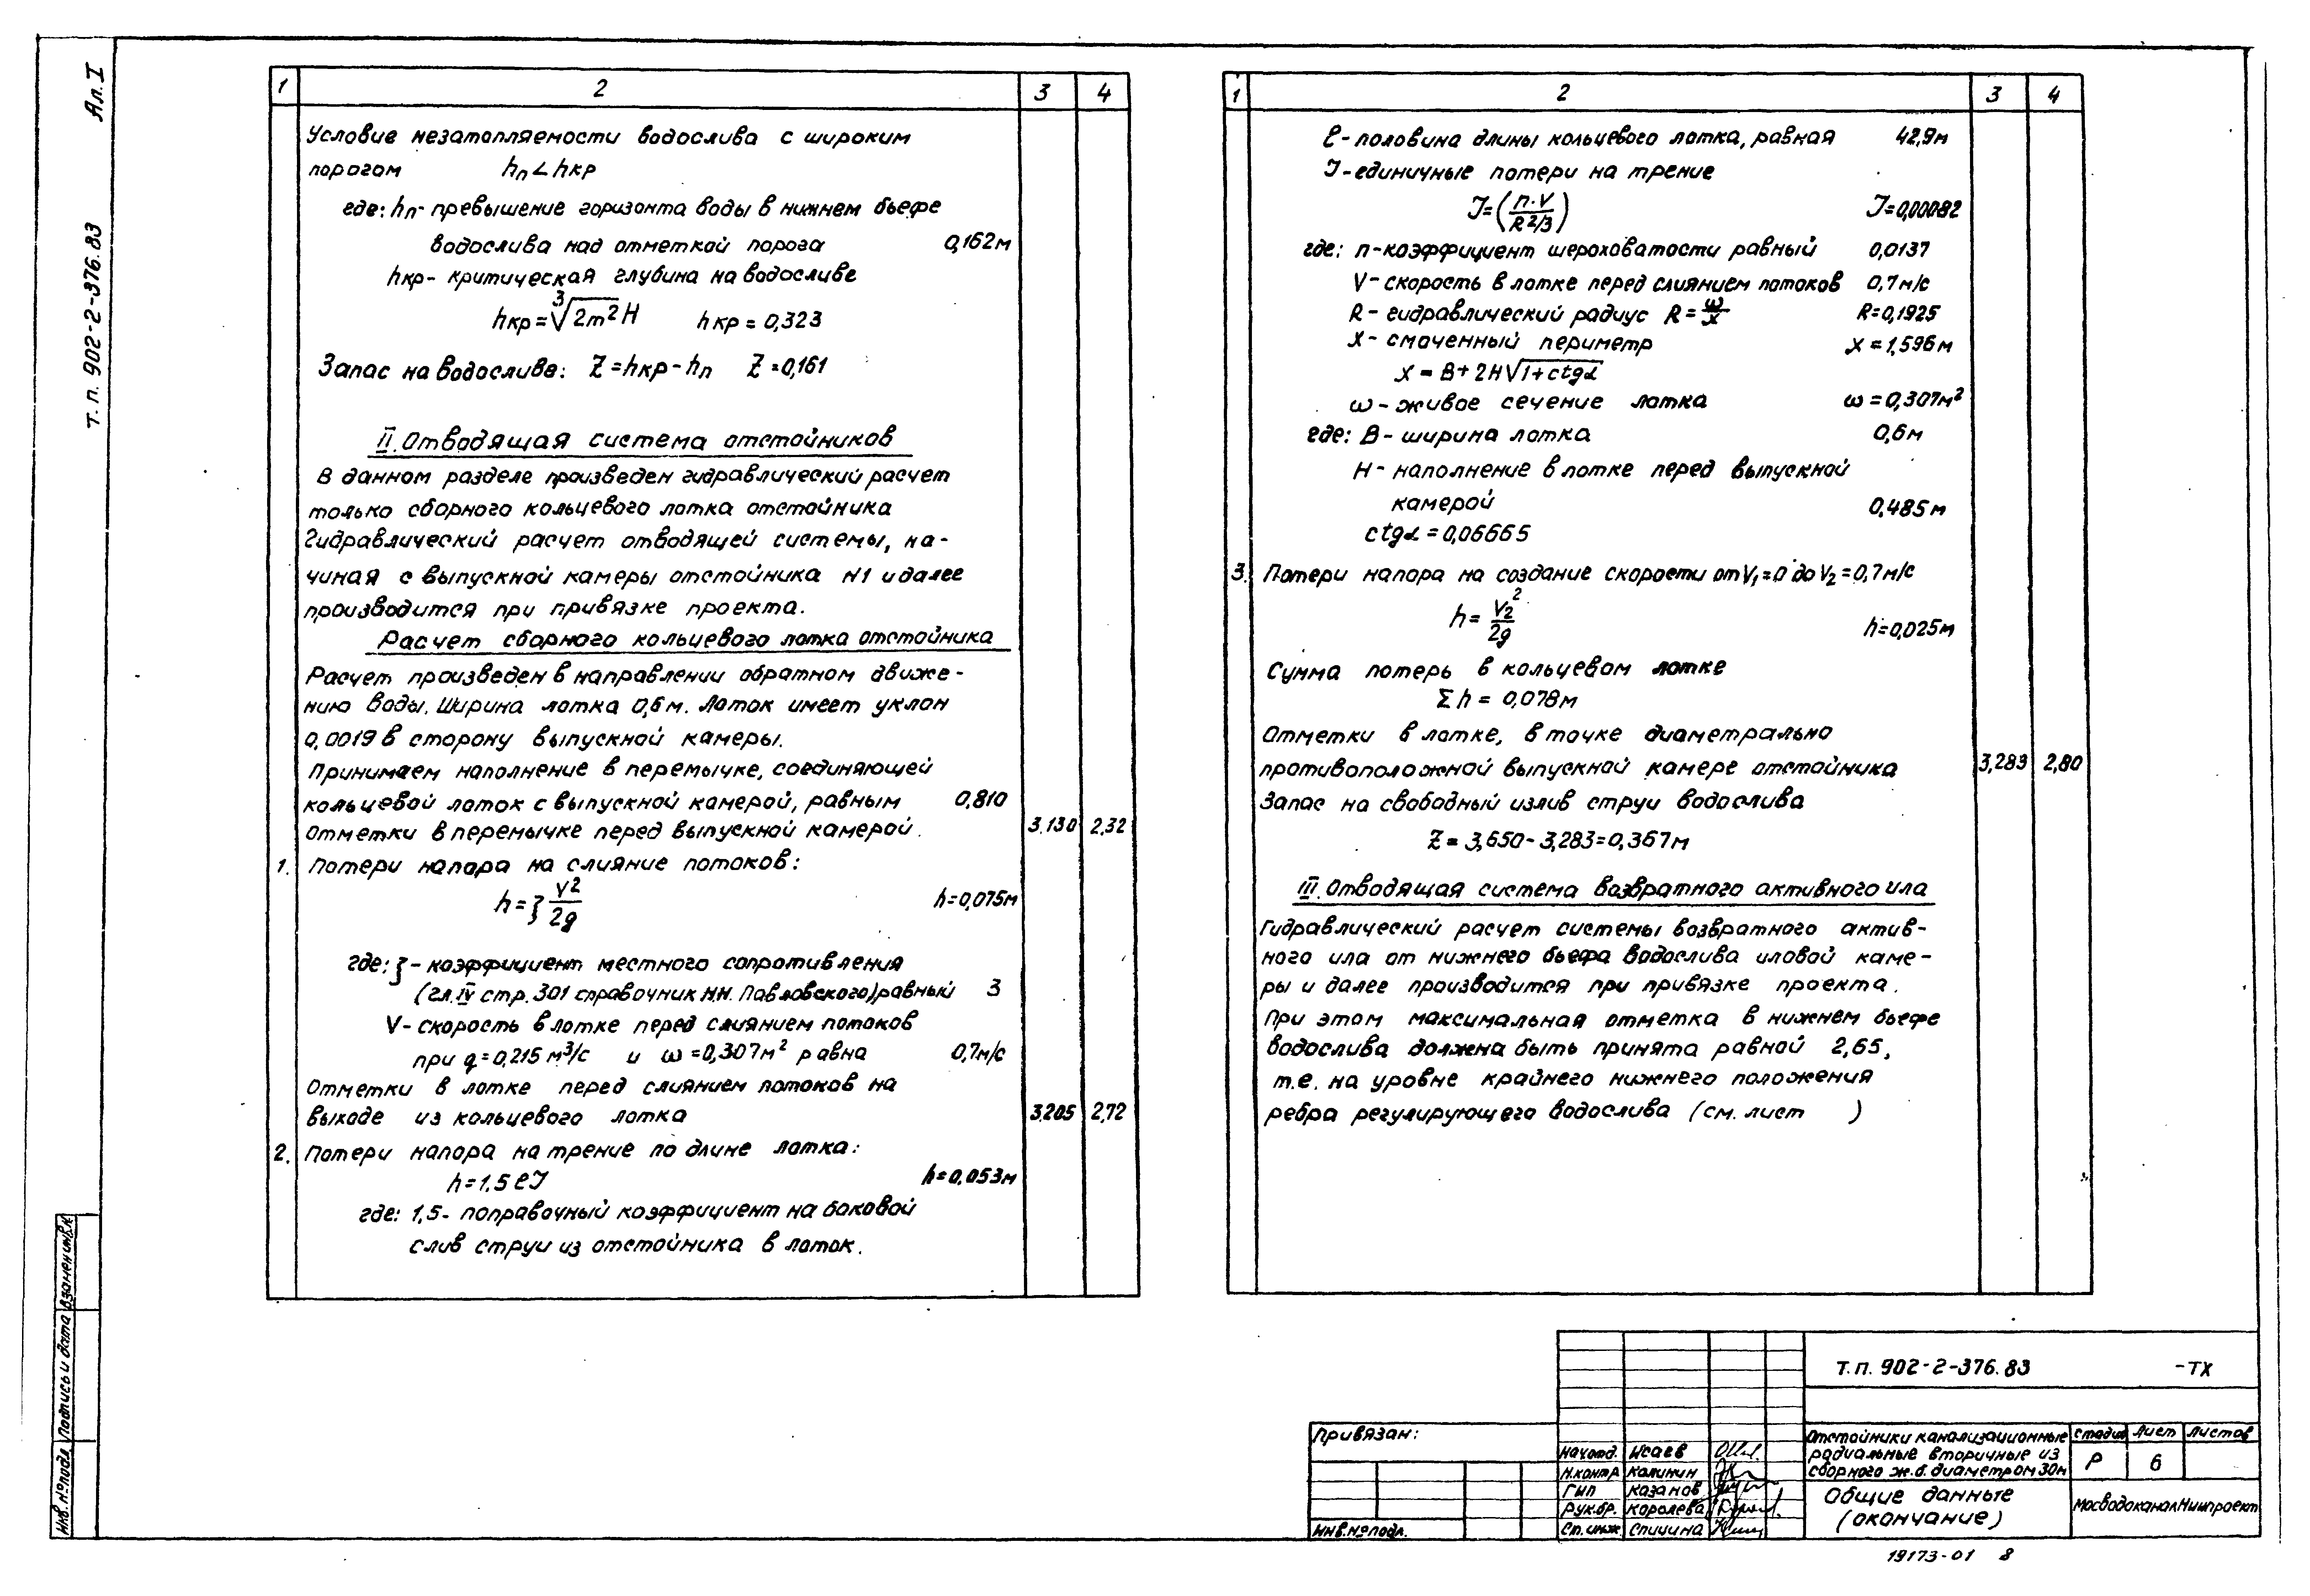 Ал. I
т. п. 902-2-376.83
1 2 3 4
Условие незатопляемости водослива с широким
порогом hп < hкр
где: hп- превышение горизонта воды в нижнем бьефе
водослива над отметкой порога 0,162м
hкр- критическая глубина на водосливе
hкр = ∛2m² H hкр = 0,323
Запас на водосливе: Z = hкр - hп Z = 0,161
II. Отводящая система отстойников
В данном разделе произведен гидравлический расчет
только сборного кольцевого лотка отстойника
Гидравлический расчет отводящей системы, на-
чиная с выпускной камеры отстойника N1 и далее
производится при привязке проекта.
Расчет сборного кольцевого лотка отстойника
Расчет произведен в направлении обратном движе-
нию воды. Ширина лотка 0,6м. Лоток имеет уклон
0,0019 в сторону выпускной камеры.
Принимаем наполнение в перемычке, соединяющей
кольцевой лоток с выпускной камерой, равным 0,810
Отметки в перемычке перед выпускной камерой. 3.130 2,32
1. Потери напора на слияние потоков:
h = ξ V²/2g h=0,075м
где: ξ - коэффициент местного сопротивления
(гл. IV стр. 301 справочник Н.Н. Павловского) равный 3
V- скорость в лотке перед слиянием потоков
при q = 0,215 м³/с и ω = 0,307м² равна 0,7м/с
Отметки в лотке перед слиянием потоков на
выходе из кольцевого лотка 3.205 2,72
2. Потери напора на трение по длине лотка:
h = 1.5 ℓJ h=0,053м
где: 1,5- поправочный коэффициент на боковой
слив струи из отстойника в лоток.
1 2 3 4
ℓ- половина длины кольцевого лотка, равная 42,9м
J- единичные потери на трение
J = (n·V/R2/3) J=0,00082
где: n- коэффициент шероховатости равный 0,0137
V- скорость в лотке перед слиянием потоков 0,7м/с
R- гидравлический радиус R = ω/x R=0,1925
x- смоченный периметр x = 1,596м
x = B + 2H√1+ctgα
ω- живое сечение лотка ω = 0,307м²
где: B- ширина лотка 0,6м
H- наполнение в лотке перед выпускной
камерой 0,485м
ctgα = 0,06665
3. Потери напора на создание скорости от V₁=0 до V₂=0,7м/с
h = V₂²/2g h=0,025м
Сумма потерь в кольцевом лотке
Σh = 0,078м
Отметки в лотке, в точке диаметрально
противоположной выпускной камере отстойника 3,283 2,80
Запас на свободный излив струи водослива
Z = 3,650 - 3,283 = 0,367м
III. Отводящая система возвратного активного ила
Гидравлический расчет системы возвратного актив-
ного ила от нижнего бьефа водослива иловой каме-
ры и далее производится при привязке проекта.
При этом максимальная отметка в нижнем бьефе
водослива должна быть принята равной 2,65,
т.е. на уровне крайнего нижнего положения
ребра регулирующего водослива (см. лист )
Взамен инв.N
Подпись и дата
Инв. № подл.
Привязан:
Инв. № подл.
Нач.отд. Исаев
Н.контр Калинин
ГИП Казанов
Рук.бр. Королева
Ст. инж. Спицина
Т. П. 902-2-376.83 -ТХ
Отстойники канализационные
радиальные вторичные из
сборного ж.б. диаметром 30м
Стадия Лист Листов
Р 6
Общие данные
(окончание)
МосводоканалНИИпроект
19173-01 8